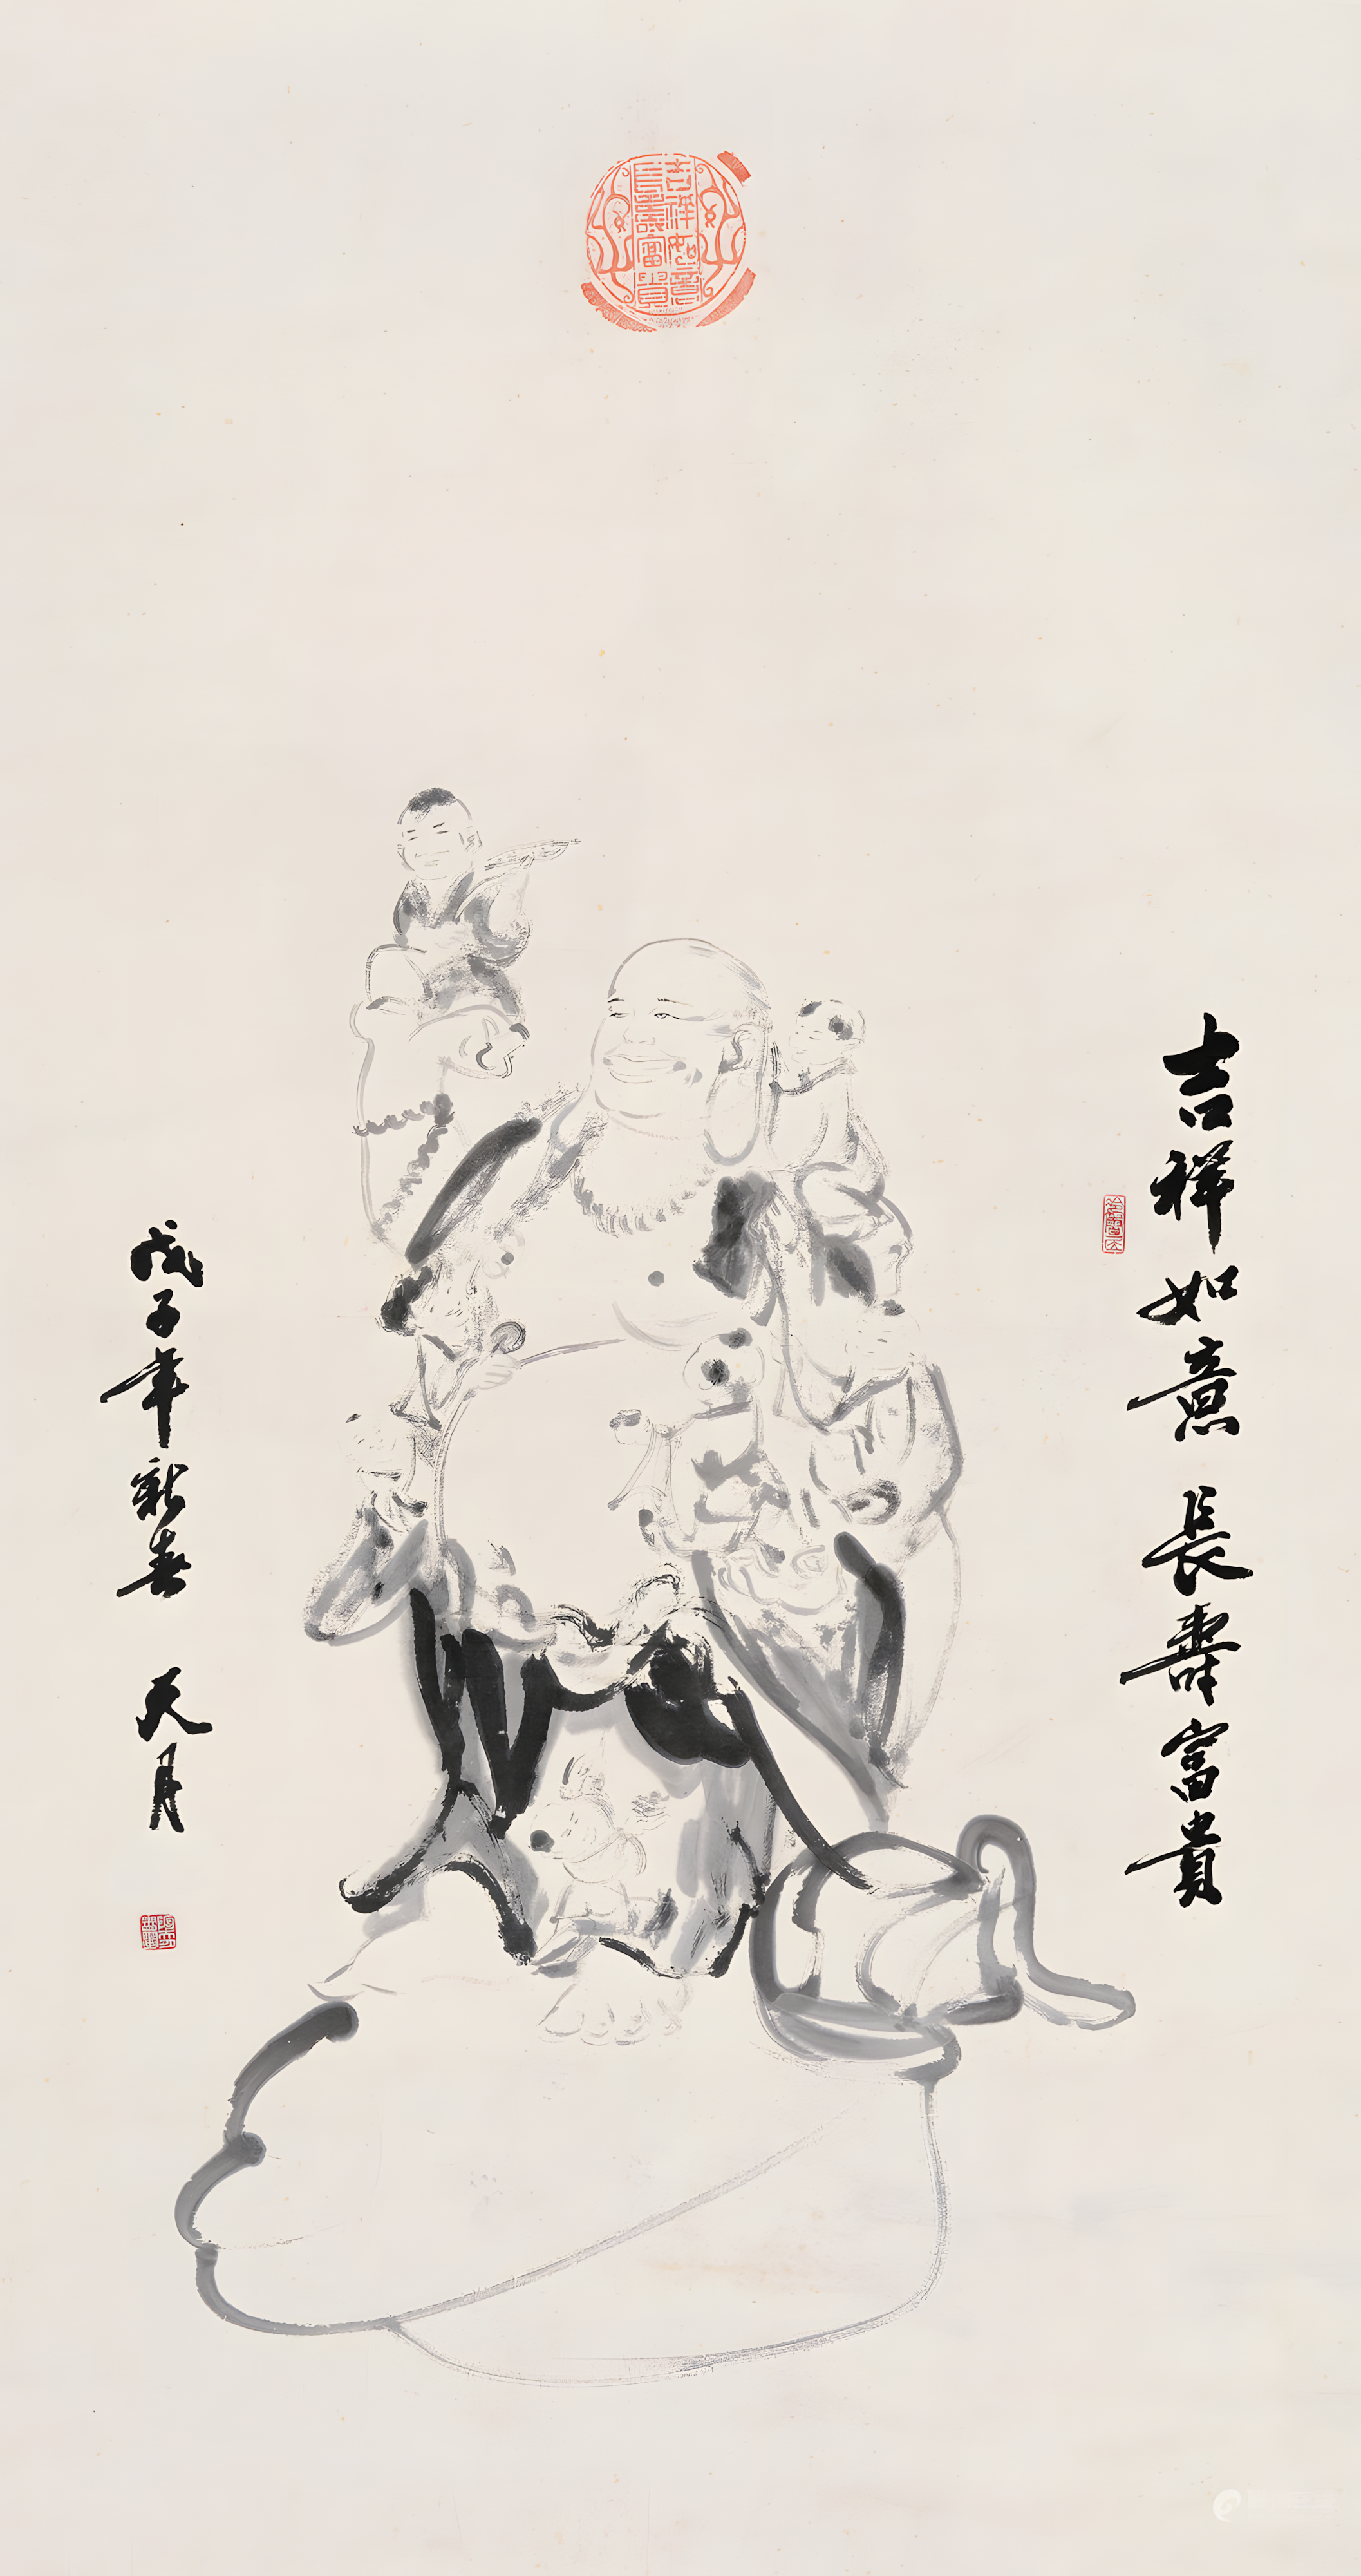 吉祥如意
長壽富貴
吉祥如意 長壽富貴
戊子年新春 天月